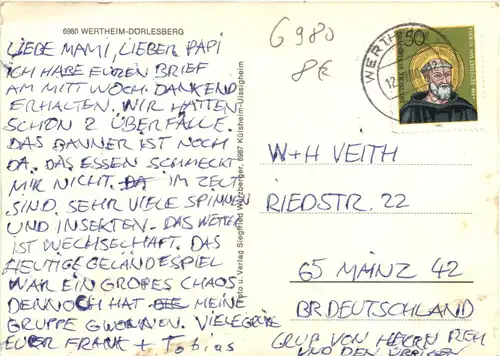 6980 WERTHEIM-DÖRLESBERG
G 980
8€
LIEBE MAMI, LIEBER PAPI
ICH HABE EUREN BRIEF
AM MITTWOCH DANKEND
ERHALTEN. WIR HATTEN
SCHON 2 ÜBERFÄLLE.
DAS BANNER IST NOCH
DA. DAS ESSEN SCHMECKT
MIR NICHT. IM ZELT
SIND SEHR VIELE SPINNEN
UND INSEKTEN. DAS WETTER
IST WECHSELHAFT. DAS
HEUTIGE GELÄNDESPIEL
WAR EIN GROßES CHAOS
DENNOCH HAT MEINE
GRUPPE GWONNEN. VIELE GRÜßE
EUER FRANK + Tobias
Foto u. Verlag Siegfried Würzberger, 6987 Külsheim-Uissigheim
WERTH
12.
50
W+H VEITH
RIEDSTR. 22
65 MAINZ 42
BR DEUTSCHLAND
GRUß VON HERRN REH
UND DEN ÜBRIGEN